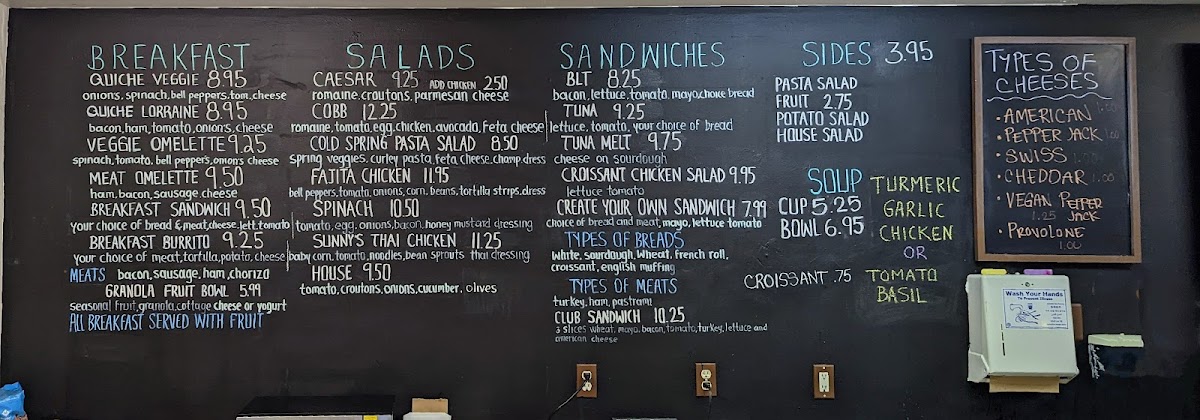 BREAKFAST
QUICHE VEGGIE 8.95
onions, spinach, bell peppers, tom, cheese
QUICHE LORRAINE 8.95
bacon, ham, tomato, onions, cheese
VEGGIE OMELETTE 9.25
spinach, tomato, bell peppers, onions cheese
MEAT OMELETTE 9.50
ham, bacon, sausage cheese
BREAKFAST SANDWICH 9.50
your choice of bread & meat, cheese, lett, tomato
BREAKFAST BURRITO 9.25
your choice of meat, tortilla, potato, cheese
MEATS bacon, sausage, ham, chorizo
GRANOLA FRUIT BOWL 5.99
seasonal fruit, granola, cottage cheese or yogurt
ALL BREAKFAST SERVED WITH FRUIT
SALADS
CAESAR 9.25 ADD CHICKEN 2.50
romaine, croutons, parmesan cheese
COBB 12.25
romaine, tomato, egg, chicken, avocado, feta cheese
COLD SPRING PASTA SALAD 8.50
spring veggies, curley pasta, feta, cheese, champ, dress
FAJITA CHICKEN 11.95
bell peppers, tomato, onions, corn, beans, tortilla strips, dress
SPINACH 10.50
tomato, egg, onions, bacon, honey mustard dressing
SUNNY'S THAI CHICKEN 11.25
baby corn, tomato, noodles, bean sprouts thai dressing
HOUSE 9.50
tomato, croutons, onions, cucumber, olives
SANDWICHES
BLT 8.25
bacon, lettuce, tomato, mayo, choice bread
TUNA 9.25
lettuce, tomato, your choice of bread
TUNA MELT 9.75
cheese on sourdough
CROISSANT CHICKEN SALAD 9.95
lettuce tomato
CREATE YOUR OWN SANDWICH 7.99
choice of bread and meat, mayo, lettuce tomato
TYPES OF BREADS
white, sourdough, wheat, french roll,
croissant, english muffing
TYPES OF MEATS
turkey, ham, pastrami
CLUB SANDWICH 10.25
3 slices wheat, mayo, bacon, tomato, turkey, lettuce and
american cheese
SIDES 3.95
PASTA SALAD
FRUIT 2.75
POTATO SALAD
HOUSE SALAD
SOUP
CUP 5.25
BOWL 6.95
TURMERIC
GARLIC
CHICKEN
OR
TOMATO
BASIL
CROISSANT .75
TYPES OF
CHEESES
• AMERICAN
• PEPPER JACK 1.00
• SWISS 1.00
• CHEDDAR 1.00
• VEGAN PEPPER
1.25 JACK
• PROVOLONE
1.00
Wash Your Hands